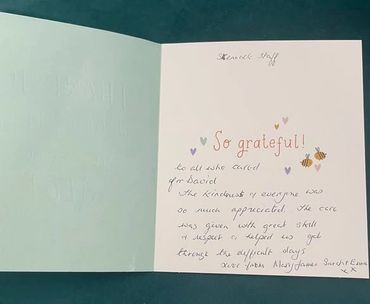 Staff
So grateful!
to all who cared
for David
The kindness of everyone was
so much appreciated. The care
was given with great skill
& respect & helped us get
through the difficult days
love from Mary James
x x